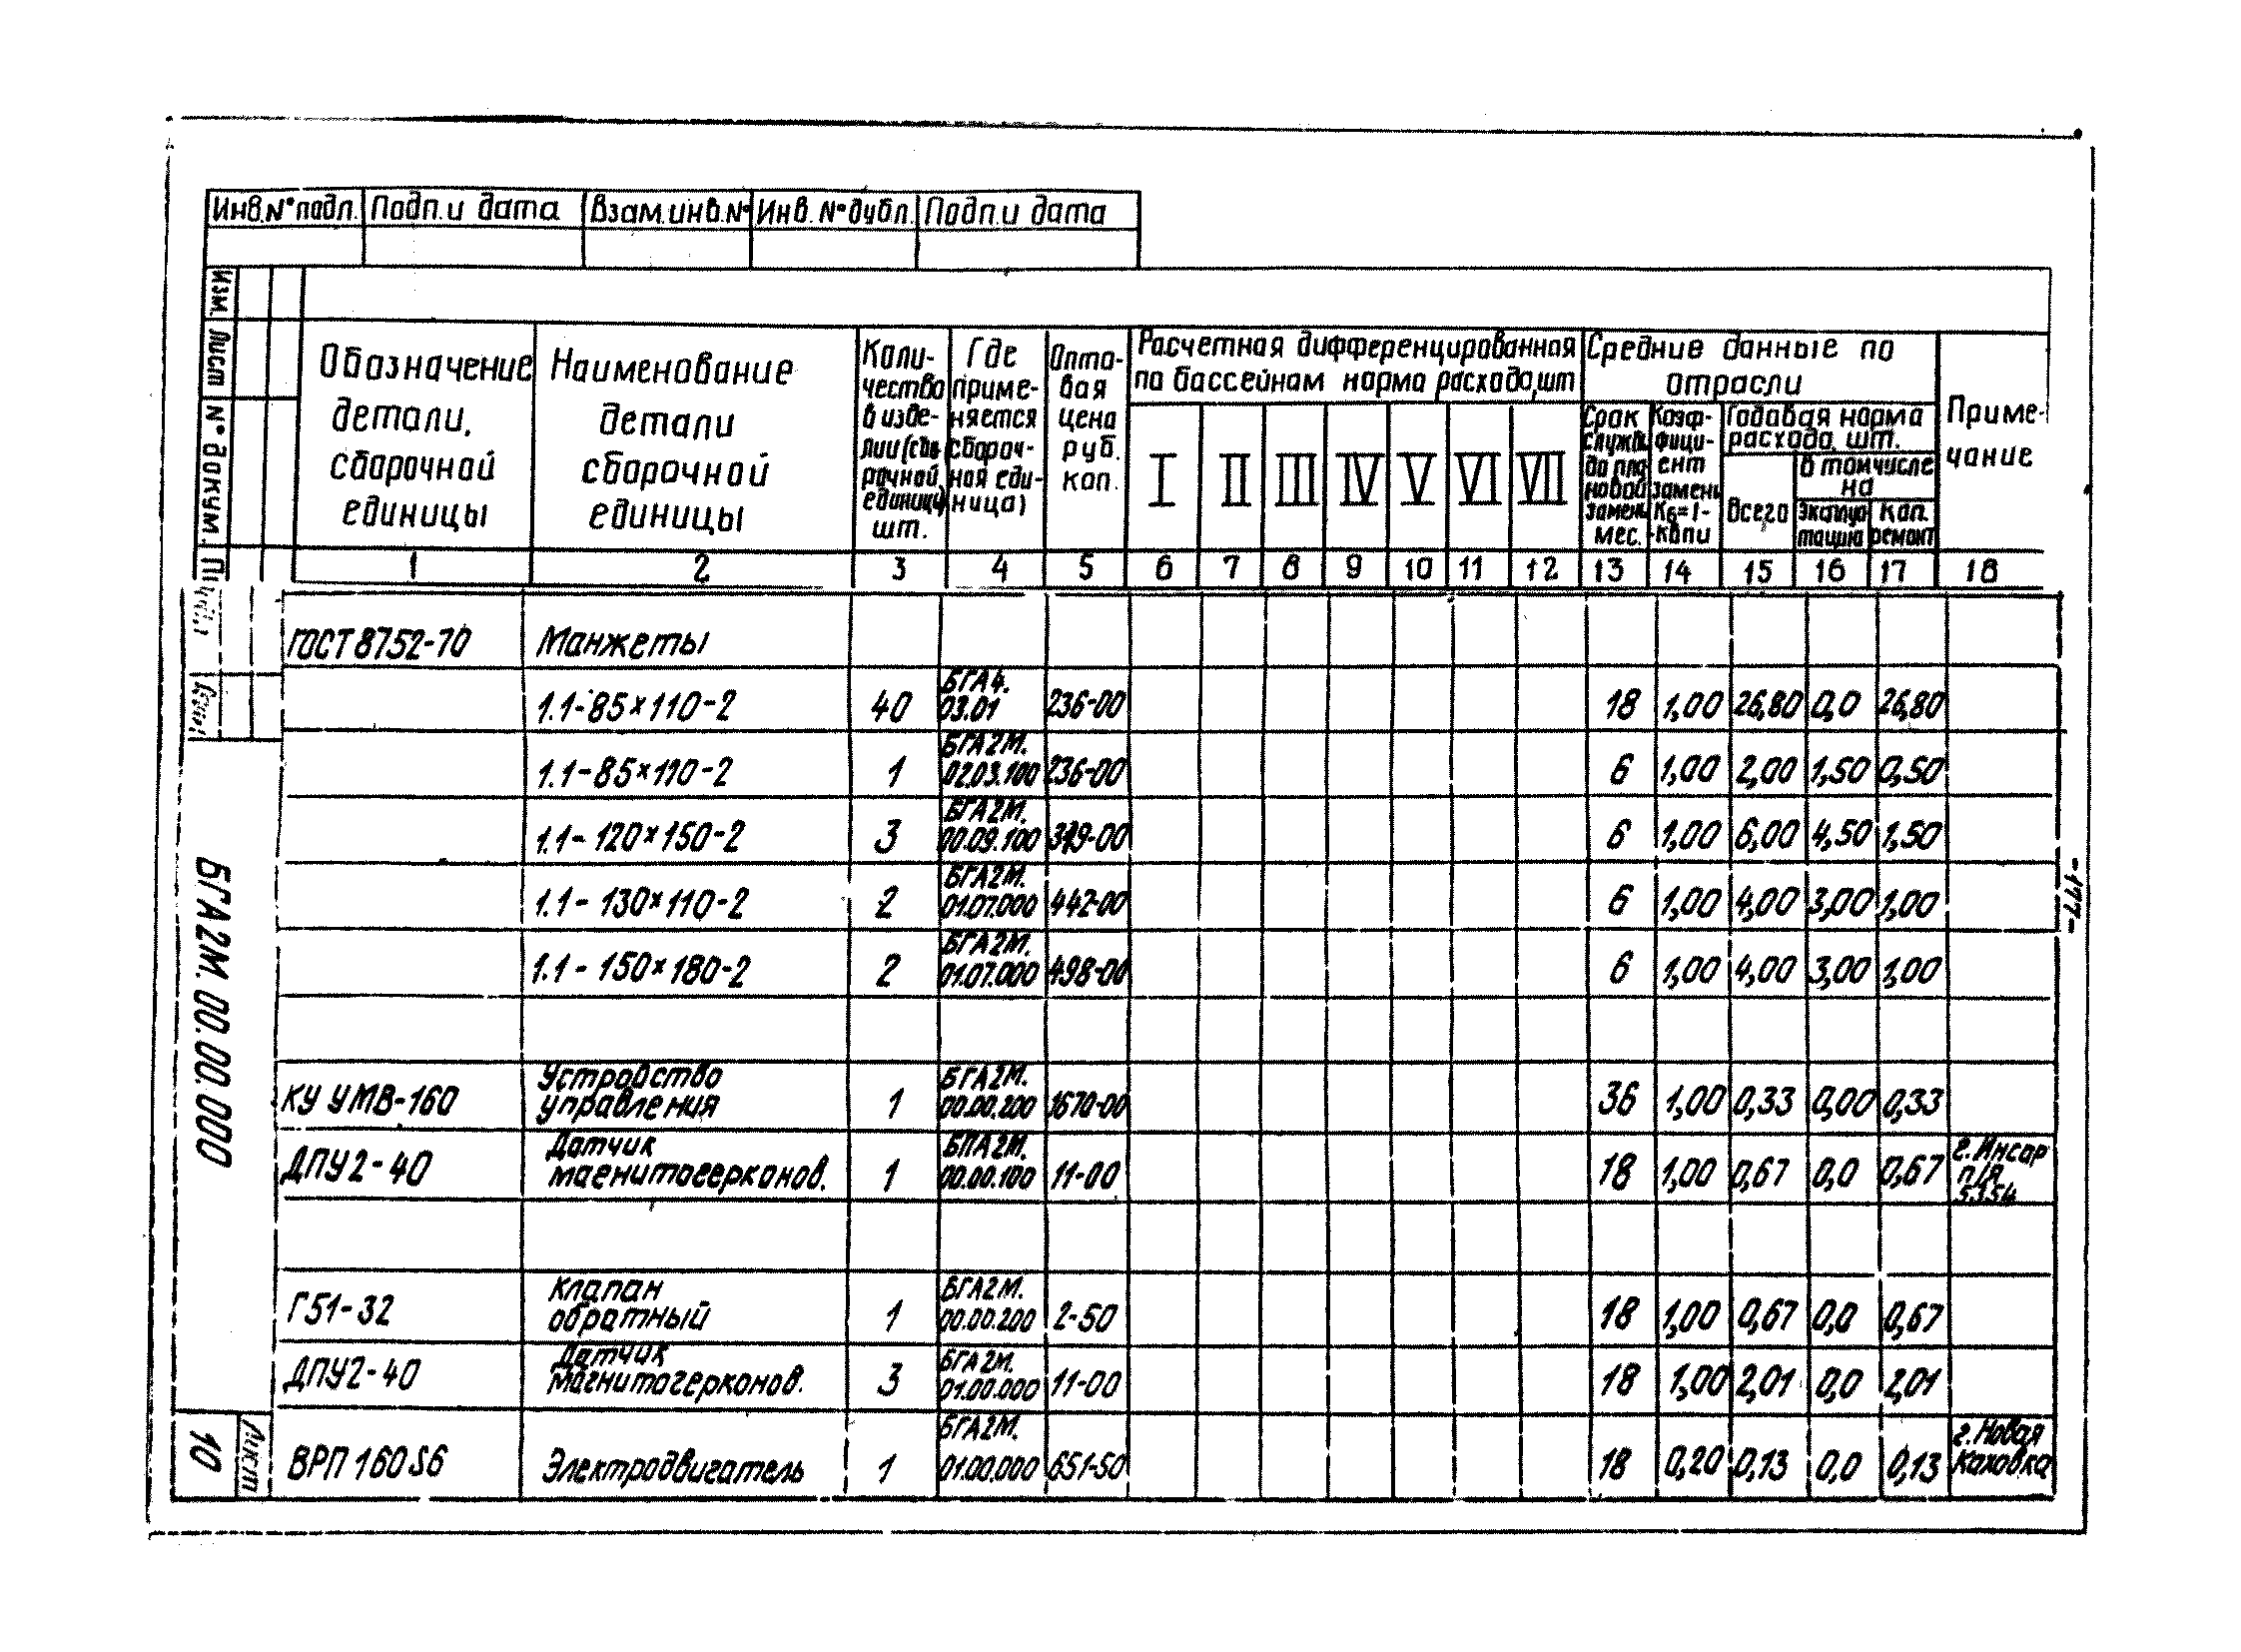 Инв.№ подл. Подп.и дата Взам.инв.№ Инв.№ дубл. Подп.и дата
Изм. Лист № докум.
Обозначение детали, сборочной единицы
Наименование детали сборочной единицы
Коли-
чество
в изде-
лии (сбо-
рочной
единице)
шт.
Где
приме-
няется
(сбороч-
ная еди-
ница)
Опто-
вая
цена
руб.
коп.
Расчетная дифференцированная
по бассейнам норма расхода, шт
I II III IV V VI VII
Средние данные по
отрасли
Срок
службы
до пла
новой
замены
мес.
Коэф-
фици-
ент
замены
Кв=1-
-Квпи
Годовая норма
расхода, шт.
Всего
в том числе
на
эксплуа
тацию
кап.
ремонт
Приме-
чание
1 2 3 4 5 6 7 8 9 10 11 12 13 14 15 16 17 18
ГОСТ 8752-70 Манжеты
1.1-85×110-2 40 БГА4. 03.01 236-00 18 1,00 26,80 0,0 26,80
1.1-85×110-2 1 БГА2М. 02.03.100 236-00 6 1,00 2,00 1,50 0,50
1.1-120×150-2 3 БГА2М. 00.09.100 6 1,00 6,00 4,50 1,50
1.1-130×110-2 2 БГА2М. 01.07.000 442-00 6 1,00 4,00 3,00 1,00
1.1-150×180-2 2 БГА2М. 01.07.000 498-00 6 1,00 4,00 3,00 1,00
КУ УМВ-160 Устройство управления 1 БГА2М. 00.00.200 1670-00 36 1,00 0,33 0,00 0,33
ДПУ2-40 Датчик магнитогерконов. 1 БПА2М. 00.00.100 11-00 18 1,00 0,67 0,0 0,67 г.Инсар п/я 5354
Г51-32 Клапан обратный 1 БГА2М. 00.00.200 2-50 18 1,00 0,67 0,0 0,67
ДПУ2-40 Датчик магнитогерконов. 3 БГА2М. 01.00.000 11-00 18 1,00 2,01 0,0 2,01
ВРП 160S6 Электродвигатель 1 БГА2М. 01.00.000 651-50 18 0,20 0,13 0,0 0,13 г.Новая Каховка
БГА2М. 00.00.000
Лист
10
-177-